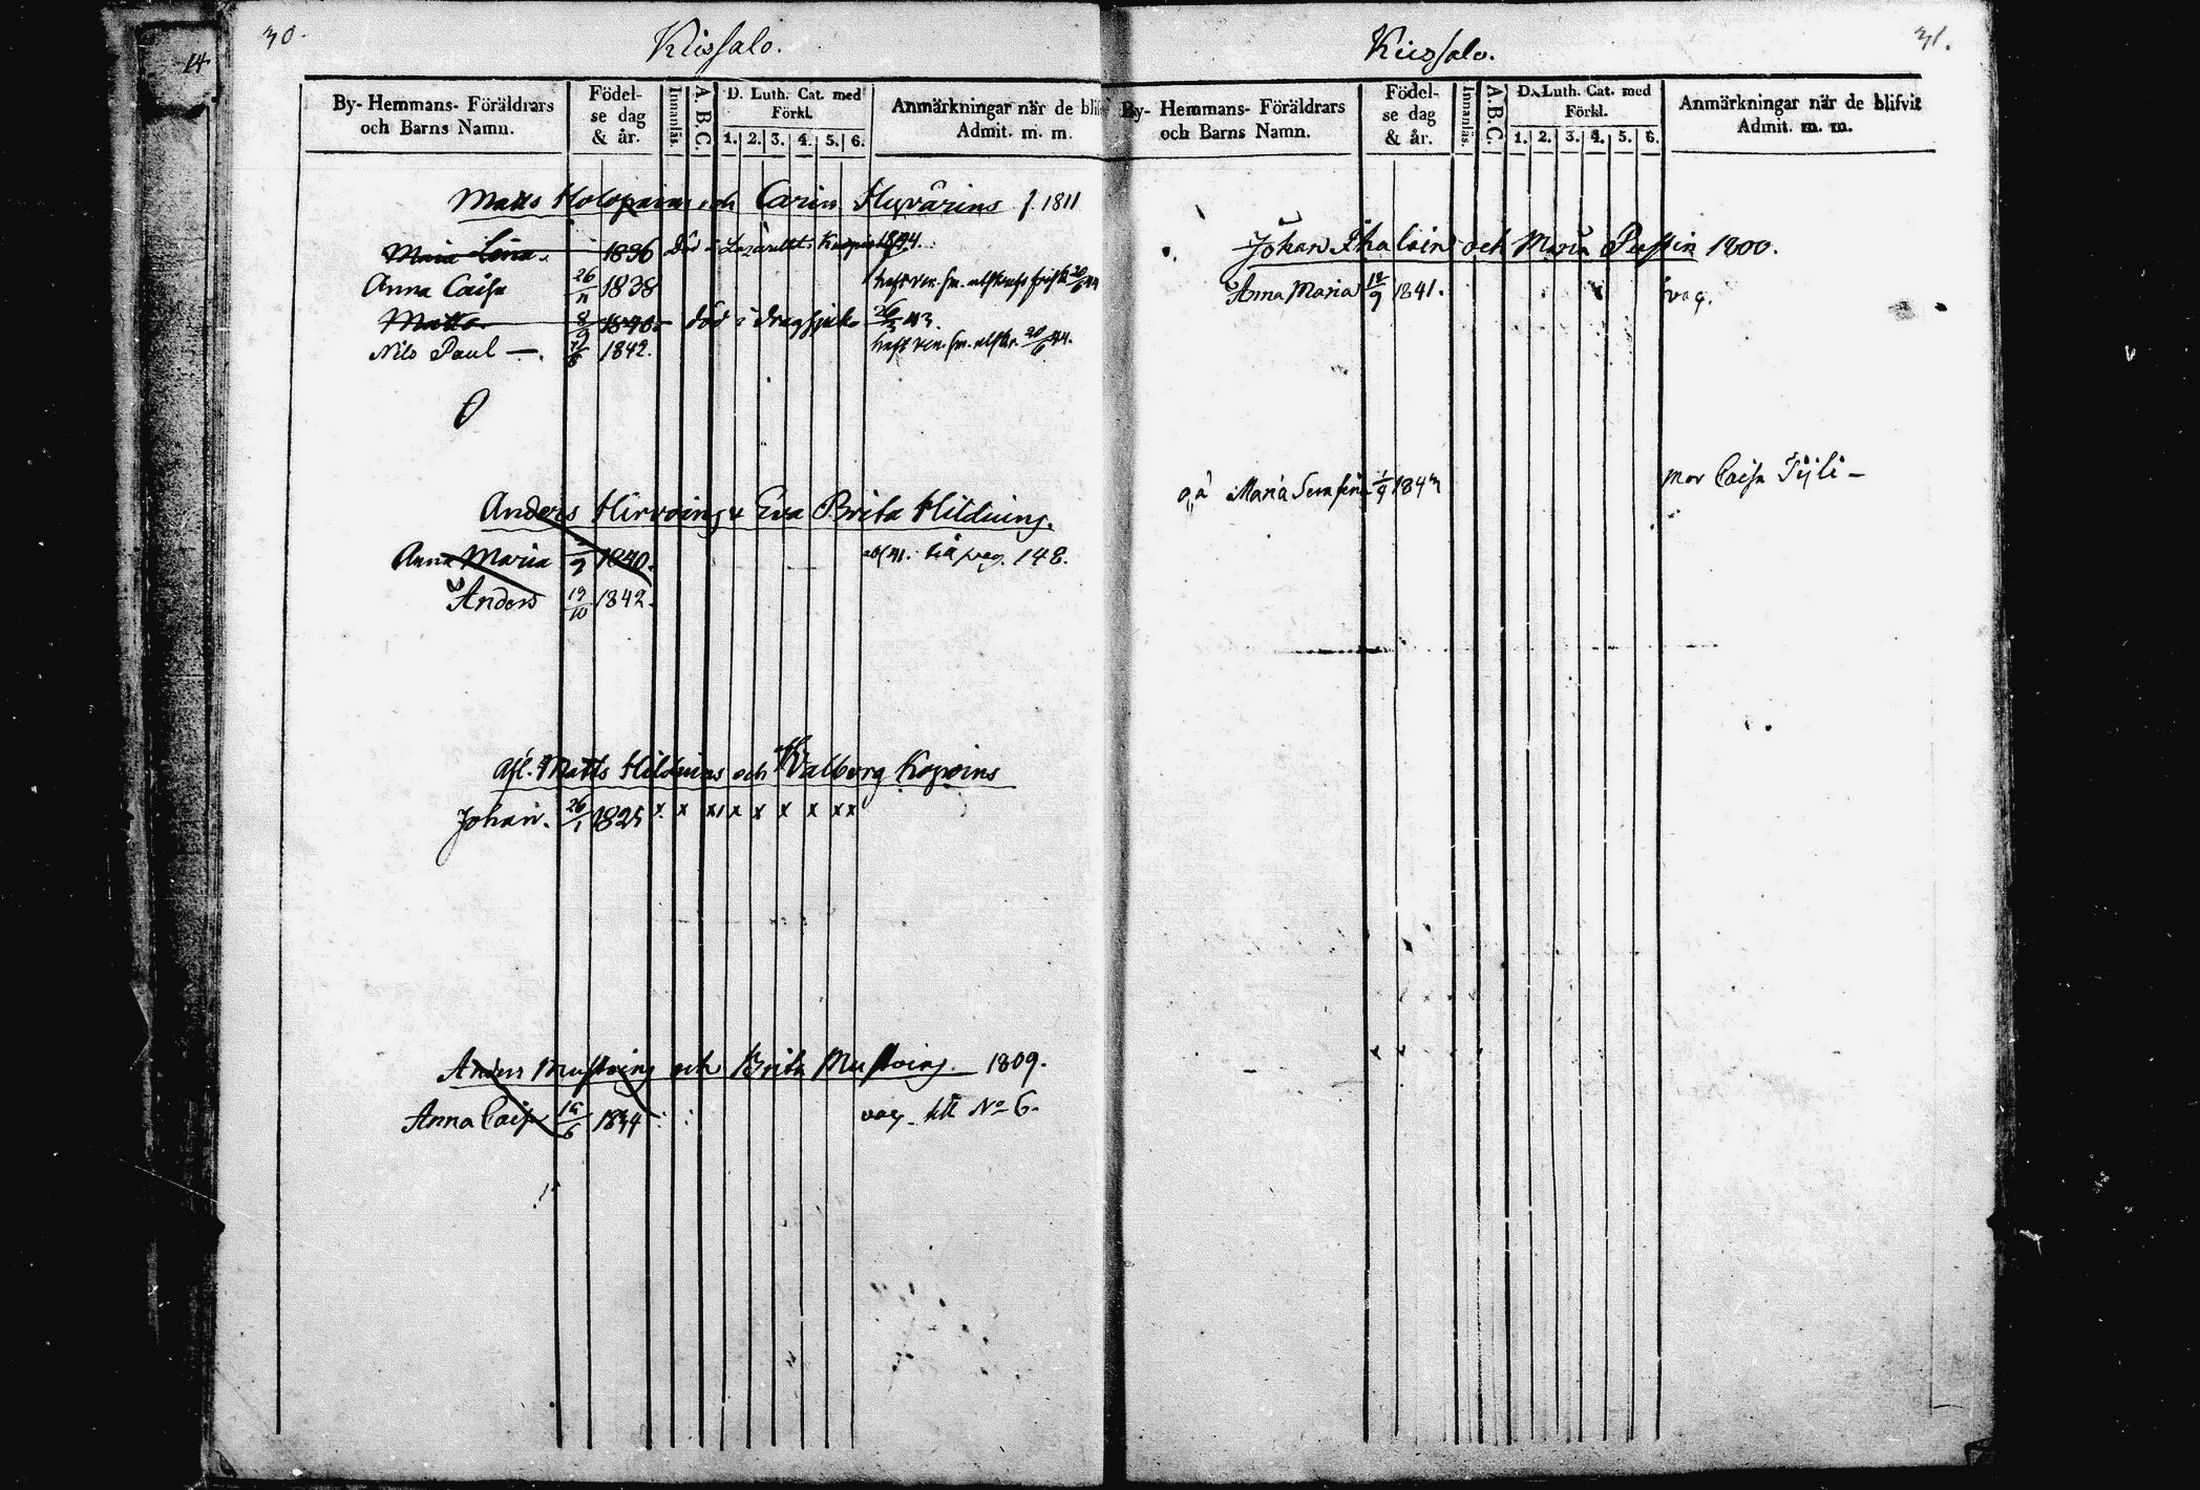 30.
Kiisalo.
By- Hemmans- Föräldrars och Barns Namn.
Födel-se dag & år.
Innanläs.
A. B. C.
D. Luth. Cat. med Förkl.
1. 2. 3. 4. 5. 6.
Anmärkningar när de blif
Admit. m. m.
Matts Holopain och Carin Hyvärins f. 1811
Maria Lena. 1836 död i Lazarettet i Kuopio 1844.
Anna Caisa 26/11 1838
Matts 8/9 1840. död i dragsjuka 26/3 43.
Nils Paul —. 1842.
Anders Hirvoing & Eva Brita Hilduing.
Anna Maria 2/9 1840. till pag. 148.
Anders 19/10 1842.
Afl. Matts Hilduins och Walborg Kopoins
Johan. 26/1 1825 x x x x x x x x x x
Anders Mustoing och Brita Mustoing. 1809.
Anna Caisa 16/6 1834 vag. till No 6.
31.
Kiisalo.
By- Hemmans- Föräldrars och Barns Namn.
Födel-se dag & år.
Innanläs.
A. B. C.
D. Luth. Cat. med Förkl.
1. 2. 3. 4. 5. 6.
Anmärkningar när de blifvit
Admit. m. m.
Johan Ihalain och Maria Pussin 1800.
Anna Maria 12/9 1841. vag.
oä Maria Serafina 1/9 1843 mor Caisa Tijli —
14